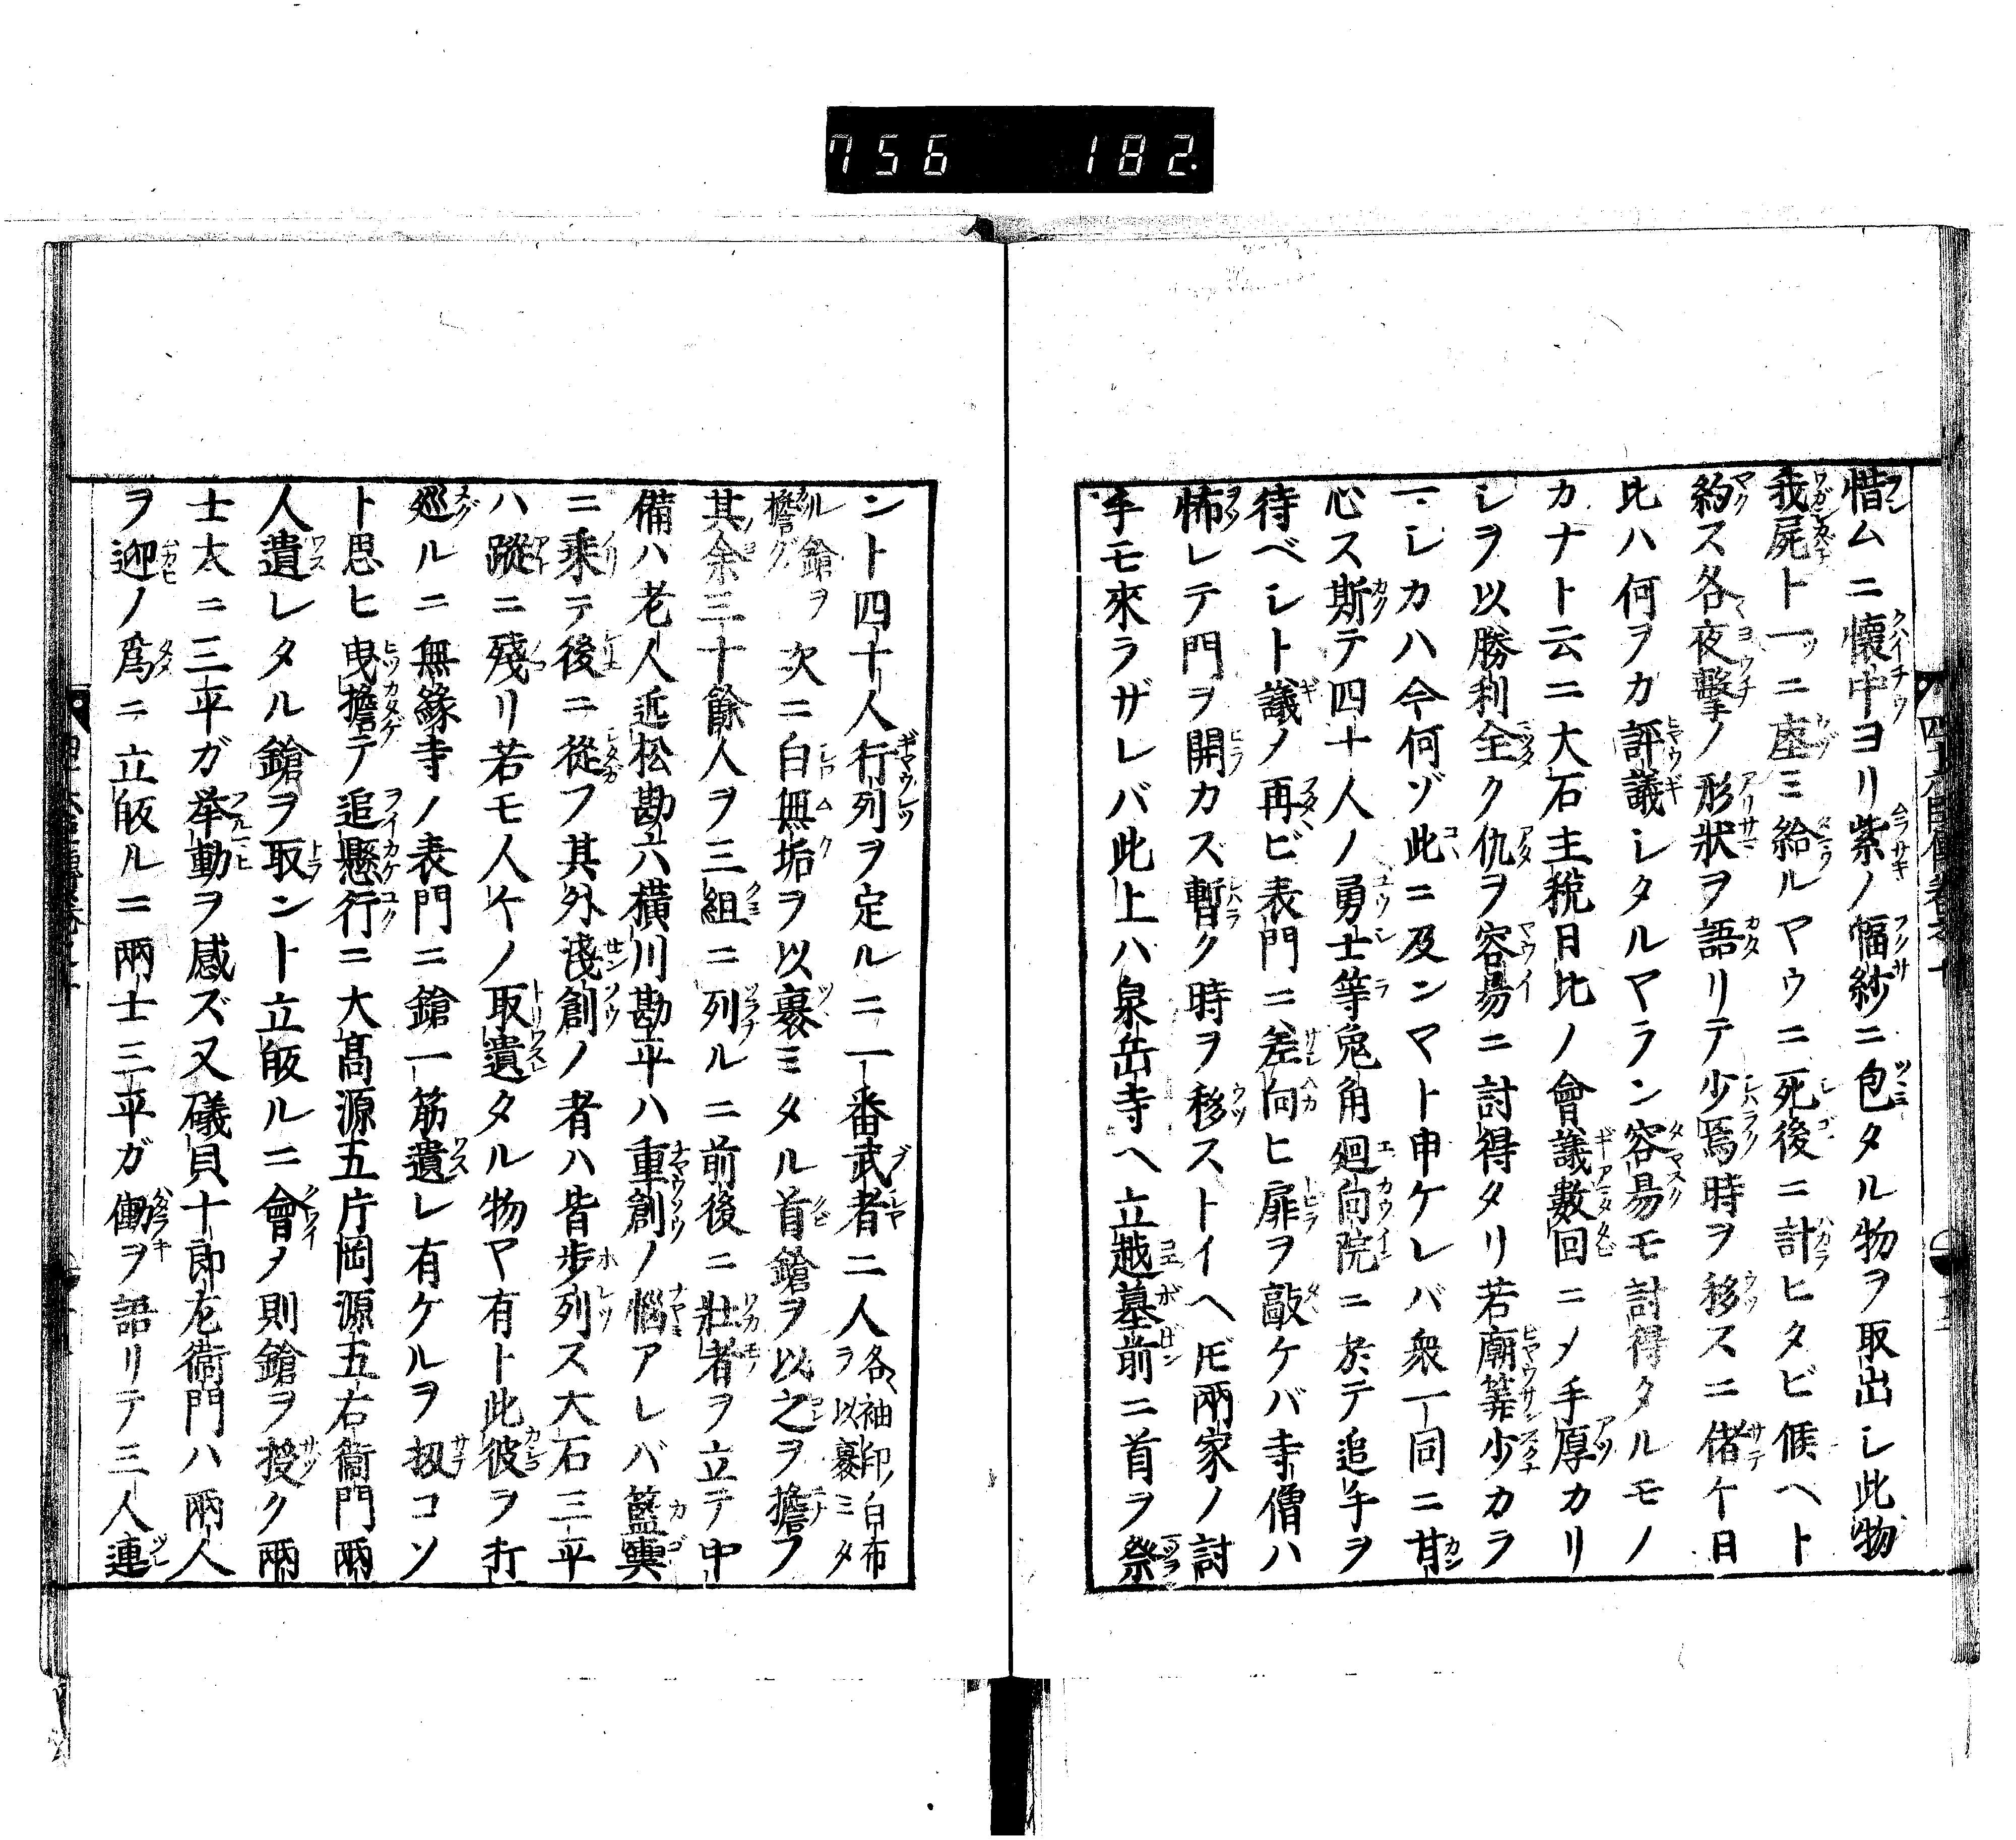 756 182.
惜ムニ懐中ヨリ紫ノ幅紗ニ包タル物ヲ取出シ此物
我屍ト一ツニ座ミ給ルヤウニ死後ニ計ヒタビ候ヘト
約ス各夜撃ノ形狀ヲ語リテ少焉時ヲ移スニ偖ケ日
比ハ何ヲカ評議シタルマラン容易モ討得タルモノ
カナト云ニ大石主税日比ノ會議數回ニメ手厚カリ
シヲ以勝利全ク仇ヲ容易ニ討得タリ若廟筭少カラ
ーシカハ今何ゾ此ニ及ンマト申ケレバ衆一同ニ甘
心ス斯テ四十人ノ勇士等兔角廻向院ニ於テ追手ヲ
待ベシト議ノ再ビ表門ニ差向ヒ扉ヲ敲ケバ寺僧ハ
怖レテ門ヲ開カズ暫ク時ヲ移ストイヘ𪜈兩家ノ討
手モ來ラザレバ此上ハ泉岳寺ヘ立越墓前ニ首ヲ祭
ント四十人行列ヲ定ルニ一番武者二人各袖印ノ白布ヲ以裹ミタ
ル鎗ヲ擔グ次ニ白無垢ヲ以裹ミタル首鎗ヲ以之ヲ擔フ
其余三十餘人ヲ三組ニ列ルニ前後ニ壯者ヲ立テ中
備ハ老人近松勘六横川勘平ハ重創ノ惱アレバ籃輿
ニ乘テ後ニ從フ其外淺創ノ者ハ皆歩列ス大石三平
ハ蹤ニ殘リ若モ人々ノ取遺タル物ヤ有ト此彼ヲ打
廵ルニ無縁寺ノ表門ニ鎗一筋遺レ有ケルヲ扨コソ
ト思ヒ曳擔テ追懸行ニ大髙源五片岡源五右衞門兩
人遺レタル鎗ヲ取ント立皈ルニ會メ則鎗ヲ授ク兩
士大ニ三平ガ挙動ヲ感ズ又礒貝十郎左衞門ハ兩人
ヲ迎ノ爲ニ立皈ルニ兩士三平ガ働ヲ語リテ三人連